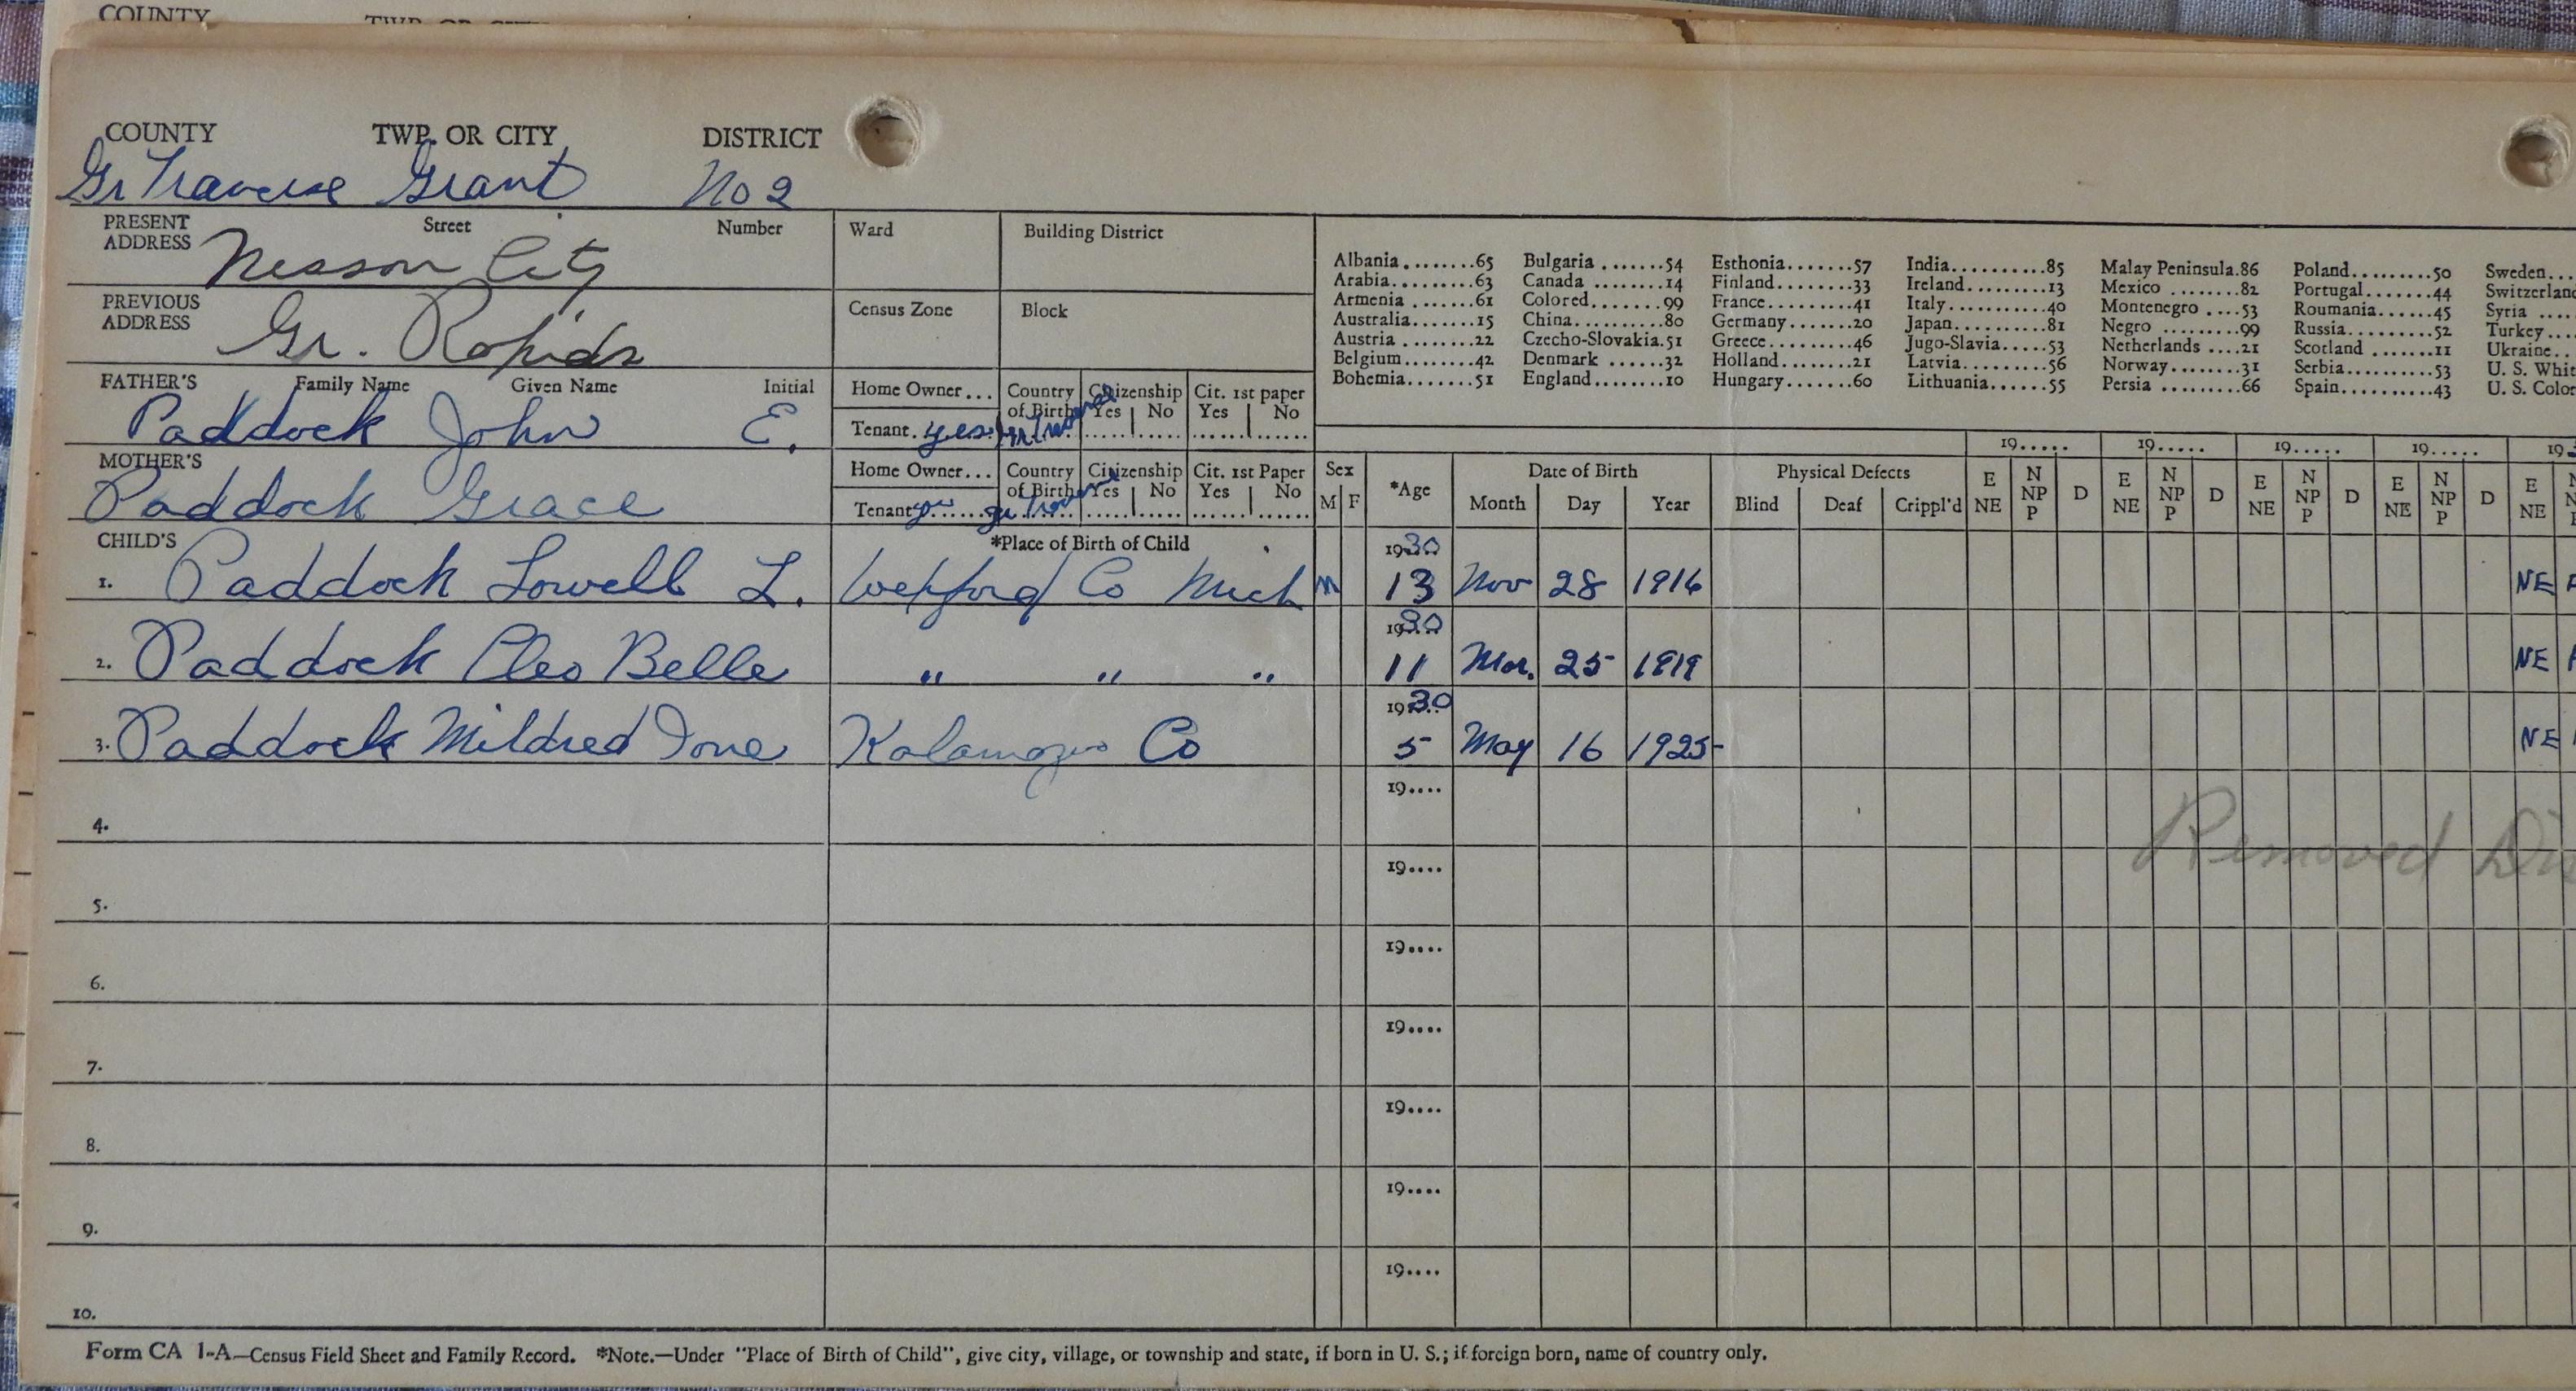 COUNTY
COUNTY TWP. OR CITY DISTRICT
Gr Traverse Grant No 2
PRESENT ADDRESS Street Number Ward Building District
Nessen City
PREVIOUS ADDRESS Census Zone Block
Gr. Rapids
Albania........65 Bulgaria.......54 Esthonia.......57 India..........85 Malay Peninsula.86 Poland.........50 Sweden...
Arabia.........63 Canada........14 Finland........33 Ireland.........13 Mexico........82 Portugal.......44 Switzerland
Armenia.......61 Colored.......99 France.........41 Italy..........40 Montenegro....53 Roumania......45 Syria....
Australia.......15 China..........80 Germany.......20 Japan..........81 Negro.........99 Russia.........52 Turkey...
Austria........22 Czecho-Slovakia.51 Greece.........46 Jugo-Slavia.....53 Netherlands....21 Scotland.......11 Ukraine..
Belgium........42 Denmark.......32 Holland........21 Latvia..........56 Norway........31 Serbia.........53 U. S. Whit
Bohemia.......51 England........10 Hungary.......60 Lithuania......55 Persia.........66 Spain..........43 U. S. Color
FATHER'S Family Name Given Name Initial Home Owner... Country of Birth Citizenship Yes No Cit. 1st paper Yes No
Paddock John E. Tenant. yes
19..... 19..... 19..... 19..... 193
MOTHER'S Home Owner... Country of Birth Citizenship Yes No Cit. 1st Paper Yes No Sex *Age Date of Birth Physical Defects
Paddock Grace Tenant yes gr Trav M F Month Day Year Blind Deaf Crippl'd E NE N NP P D E NE N NP P D E NE N NP P D E NE N NP P D E NE
CHILD'S *Place of Birth of Child
1. Paddock Lowell L. Wexford Co Mich M 1930 13 Nov 28 1916 NE
2. Paddock Cleo Belle " " " 1930 11 Mar. 25 1919 NE
3. Paddock Mildred Ione Kalamazoo Co 1930 5 May 16 1925 NE
4. 19....
Removed Dis
5. 19....
6. 19....
7. 19....
8. 19....
9. 19....
10. 19....
Form CA 1-A—Census Field Sheet and Family Record. *Note.—Under "Place of Birth of Child", give city, village, or township and state, if born in U. S.; if foreign born, name of country only.